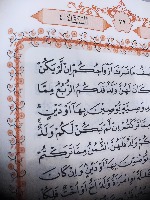 نِصْفُ مَا تَرَكَ أَزْوَاجُكُمْ إِن لَّمْ يَكُن
كَانَ لَهُنَّ وَلَدٌ فَلَكُمُ الرُّبُعُ مِمَّا
وَصِيَّةٍ يُوصِينَ بِهَا أَوْ دَيْنٍ
مِمَّا تَرَكْتُمْ إِن لَّمْ يَكُن لَّكُمْ وَلَدٌ
وَلَدٌ فَلَهُنَّ الثُّمُنُ مِمَّا تَرَكْتُم
تُوصُونَ بِهَا أَوْ دَيْنٍ وَإِن كَانَ